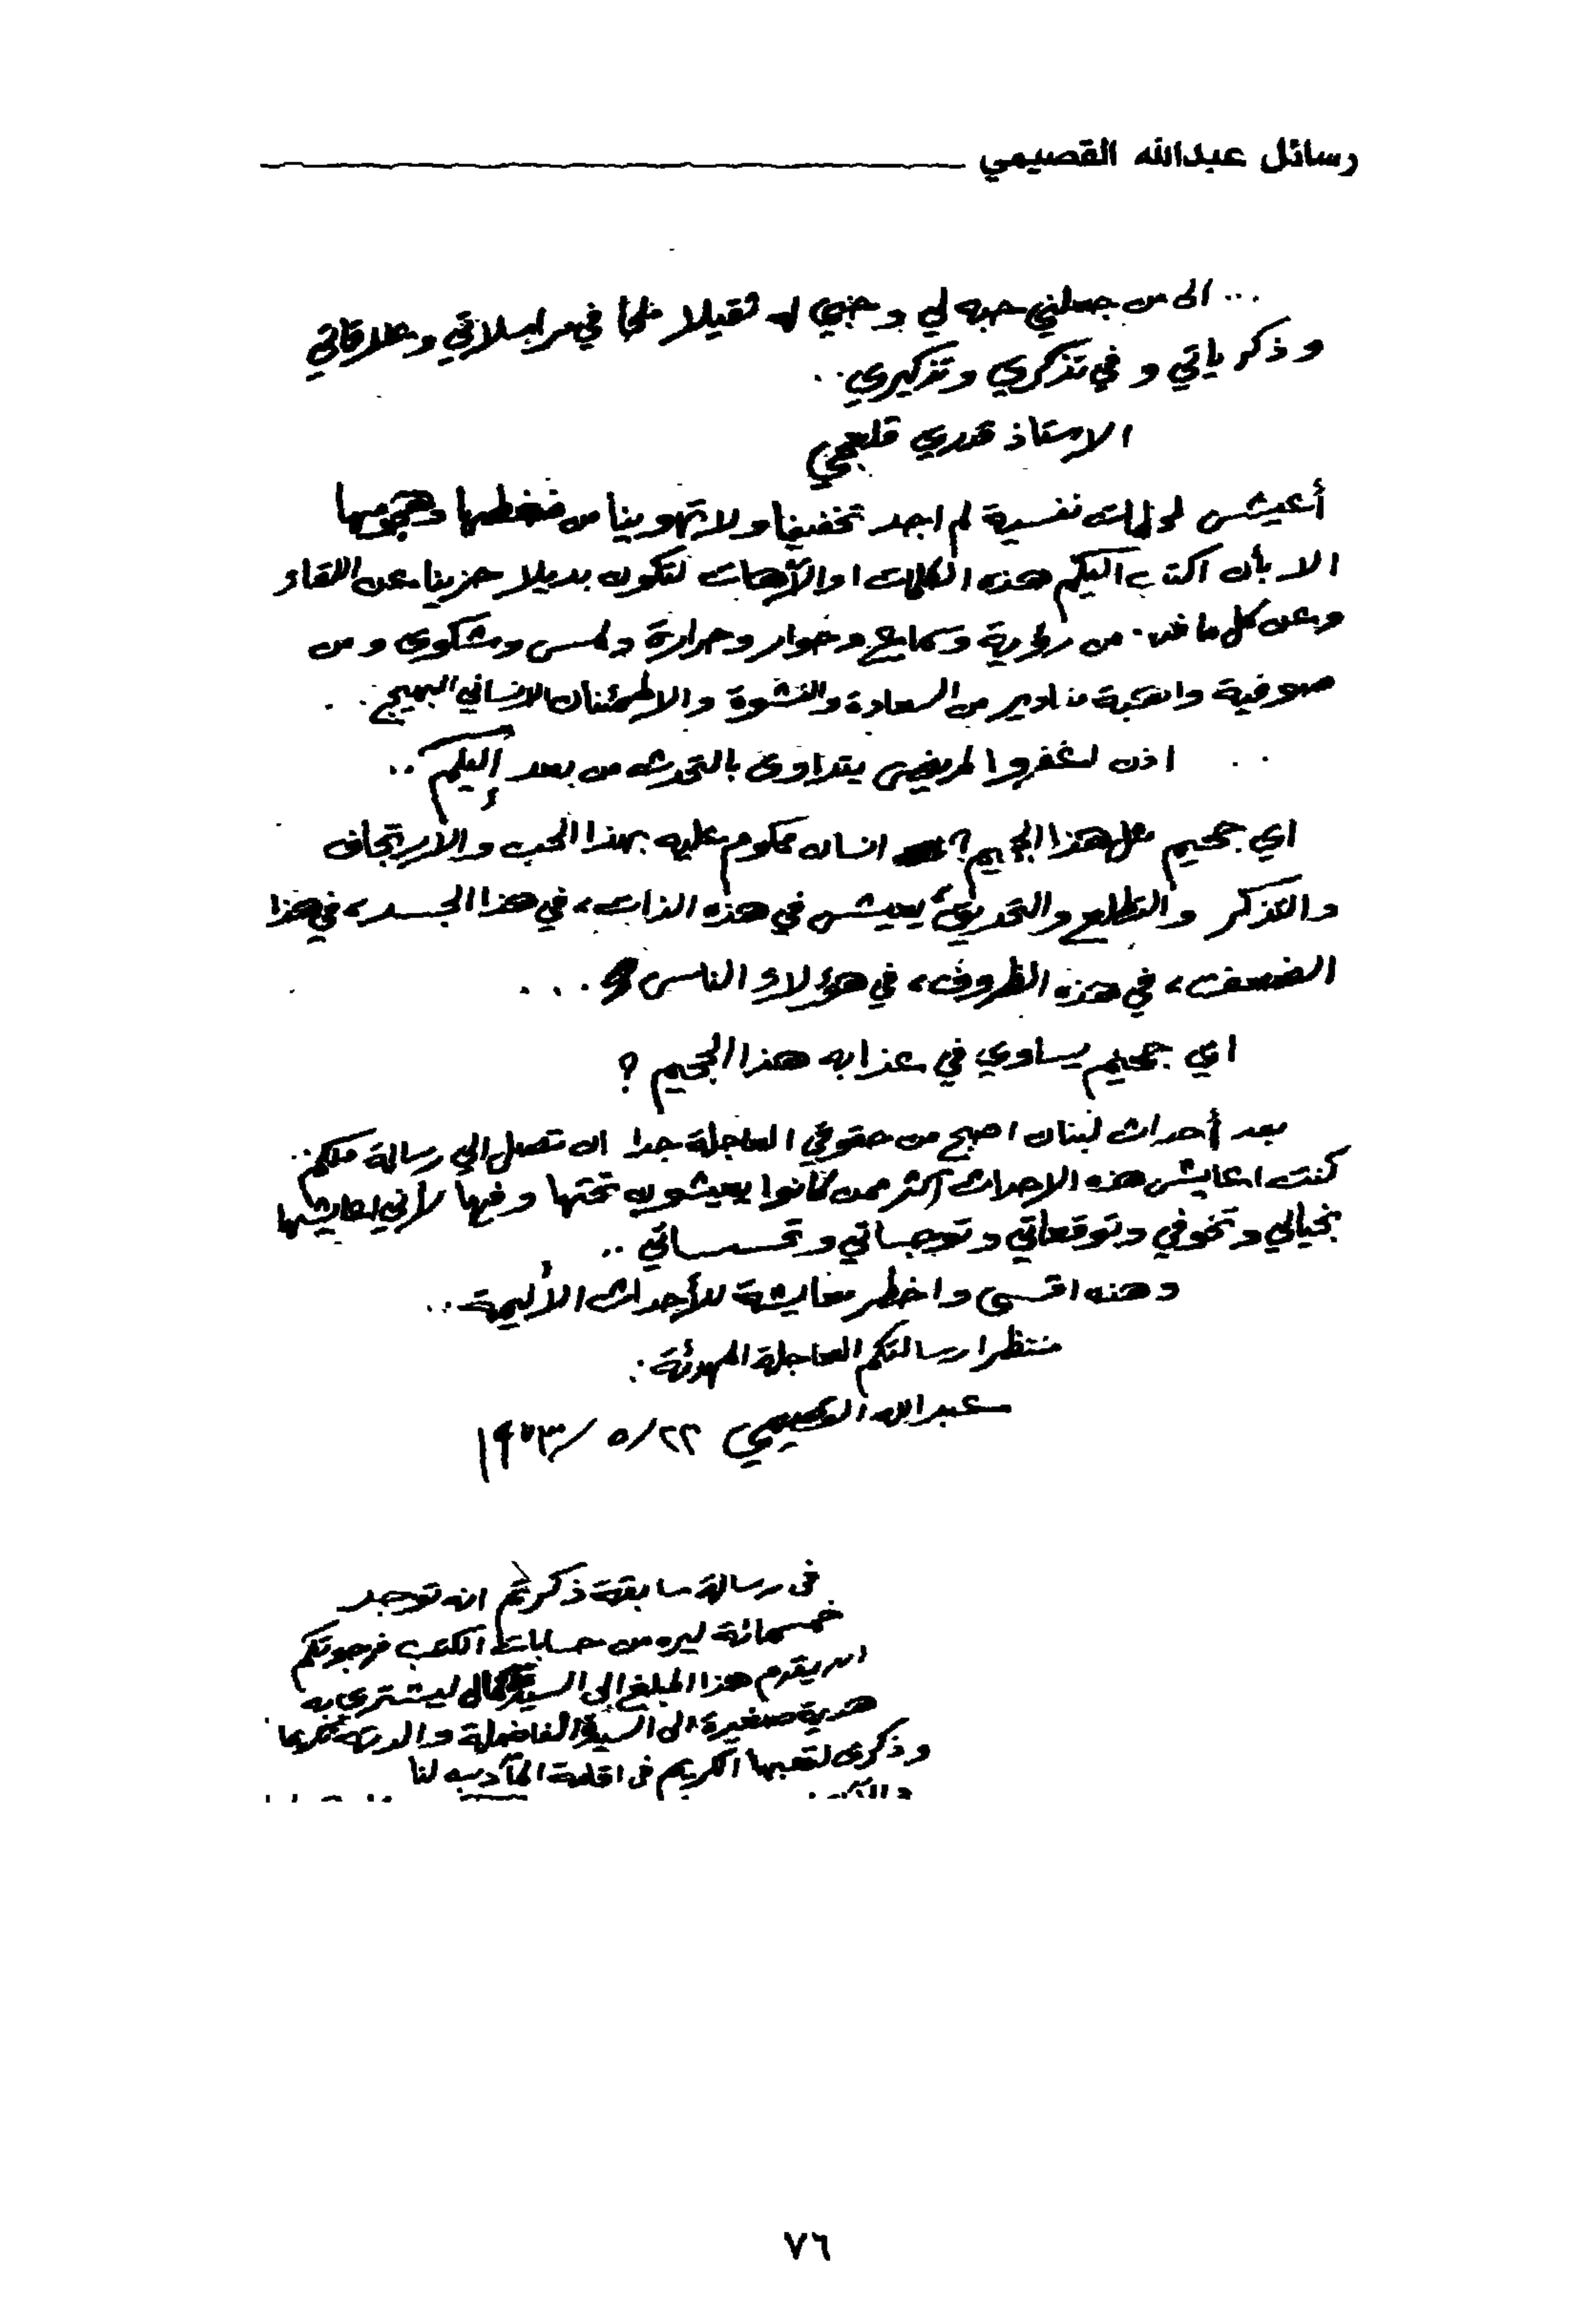 رسائل عبدالله القصيمي
... الى من جعلني حبه لي وحبي له ثقيلا ملحا في مراسلاتي وعلاقاتي
وذكرياتي وفي تذكري وتذكيري ..
الاستاذ قدري قلعجي
أعيش لحظات نفسية لم اجد تخفيفا ولا تهوينا من ضغطها وهجومها
الا بأن اكتب اليكم هذه الكلمات او الآهات لتكون بديلا حزينا عن اللقاء
وعن كل ما فيه من رؤية وسماع وحوار وحرارة ولمس وشكوى ومن
صوفية واهبة مقادير من السعادة والنشوة والاطمئنان الانساني البهيج ..
.. اذن لتغفروا لمريض يتداوى بالتحدث من بعد إليكم ..
اي جحيم مثل هذا الجحيم ؟ انسان محكوم عليه بهذا الحب والارتجاف
والتذكر والتطلع والتحديق يعيش في هذه الذات، في هذا الجسد، في هذا
الضعف، في هذه الظروف، في هؤلاء الناس ...
اي جحيم يساوي في عذابه هذا الجحيم ؟
بعد أحداث لبنان اصبح من حقوقي العاجلة جدا ان تصل الي رسالة منكم ..
كنت اعايش هذه الاحداث اكثر ممن كانوا يعيشون تحتها وفيها لأني اعايشها
بخيالي وتخوفي وتوقعاتي وتوجساتي وتحسساتي ..
وهذه اقسى واخطر معايشة للأحداث الأليمة ..
منتظرا رسالتكم العاجلة المهدئة ..
عبدالله القصيمي ٢٢/٥/١٩٧٣
فى رسالة سابقة ذكرتم انه توجد
خمسمائة ليره من حسابات الكتب فرجوتكم
ان يقدم هذا المبلغ إلى السيد كمال ليشتري به
هدية صغيرة الى السيدة الفاضلة والدته تكريما
وذكرى لتعبها الكريم فى اقامة المآدب لنا
٧٦